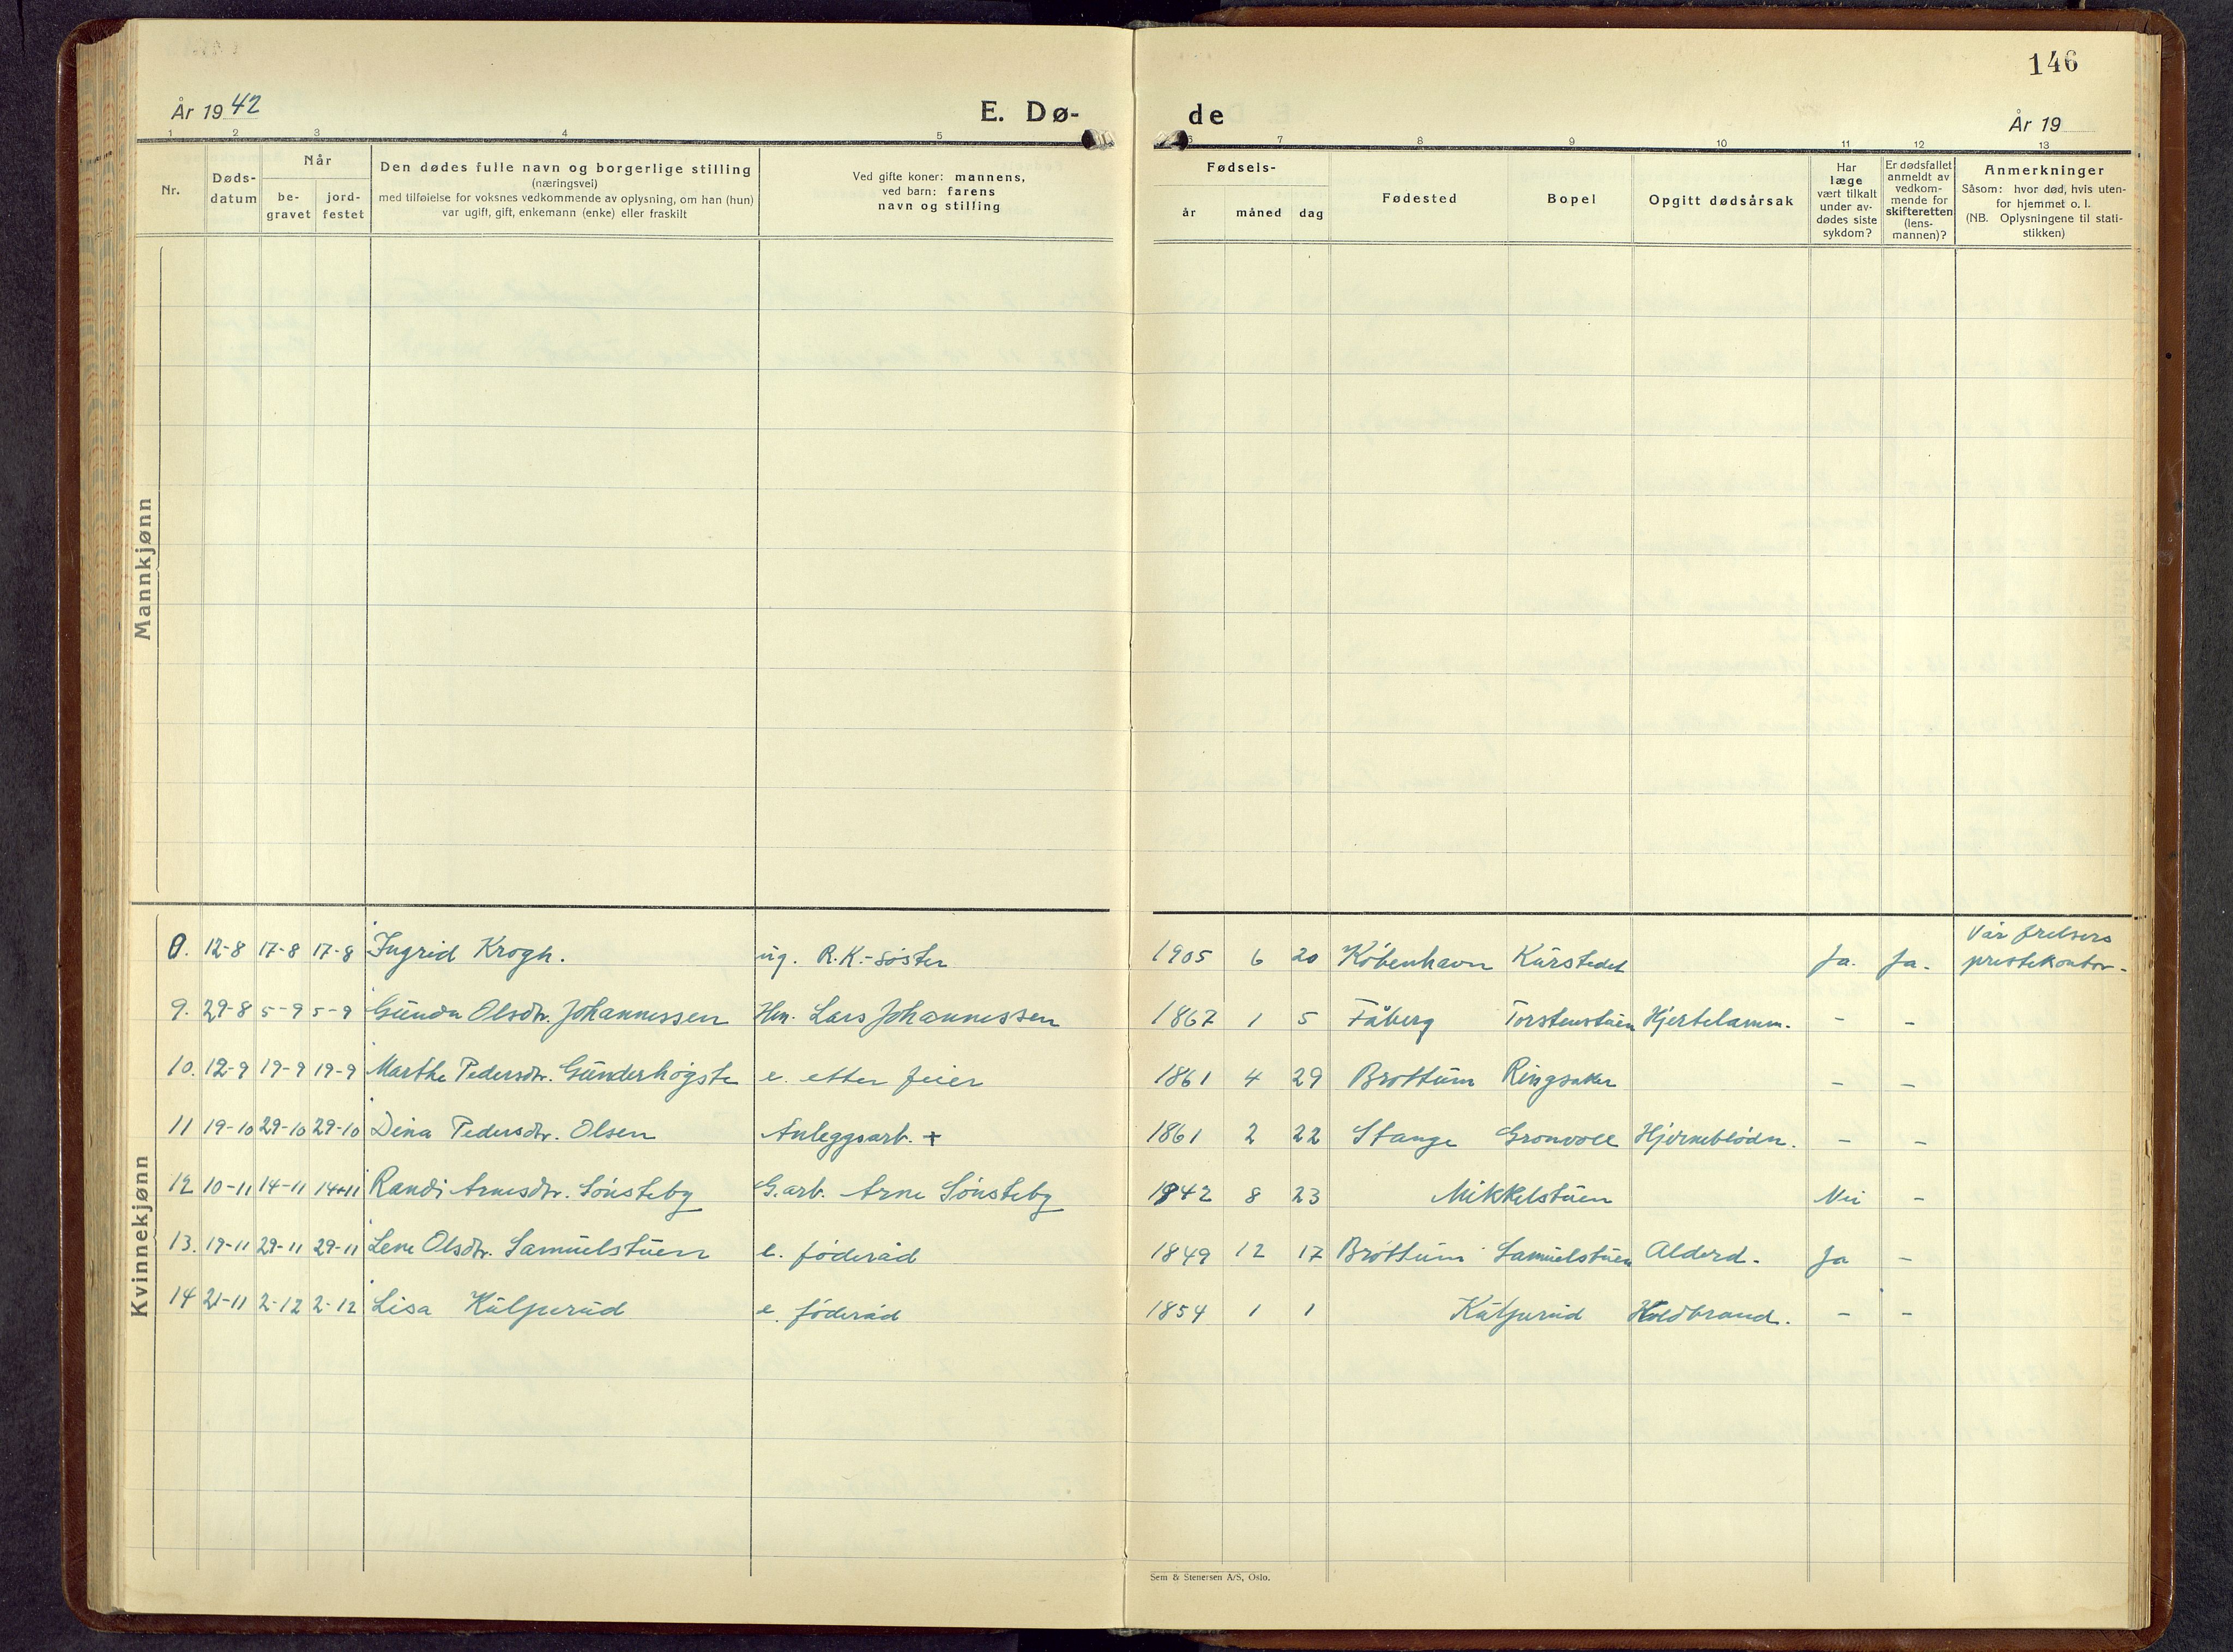 146
År 1942
E. Dø-
de
År 19
1 2 3 4 5
6 7 8 9 10 11 12 13
Nr.
Døds-
datum
Når
be-
gravet
jord-
festet
Den dødes fulle navn og borgerlige stilling
(næringsvei)
med tilføielse for voksnes vedkommende av oplysning, om han (hun)
var ugift, gift, enkemann (enke) eller fraskilt
Ved gifte koner: mannens,
ved barn: farens
navn og stilling
Fødsels-
år måned dag
Fødested
Bopel
Opgitt dødsårsak
Har
læge
vært tilkalt
under av-
dødes siste
sykdom?
Er dødsfallet
anmeldt av
vedkom-
mende for
skifteretten
(lens-
mannen)?
Anmerkninger
Såsom: hvor død, hvis uten-
for hjemmet o. l.
(NB. Oplysningene til stati-
stikken)
Mannkjønn
Kvinnekjønn
Vår frelsers
8. 12-8 17-8 17-8 Ingrid Krogh. ug. R.K.-søster 1905 6 20 København Kurstedet Ja. Ja. prestekontor.
9. 29-8 5-9 5-9 Gunda Olsdtr. Johannessen Hm. Lars Johannessen 1867 1 5 Fåberg Torstenstuen Hjertelamm. - -
10. 12-9 19-9 19-9 Marthe Pedersdtr. Gunderhøgste e. etter feier 1861 4 29 Brøttum Ringsaker - -
11 19-10 29-10 29-10 Dina Pedersdtr. Olsen Anleggsarb. + 1861 2 22 Stange Grønvoll Hjerneblødn. - -
12 10-11 14-11 14-11 Randi Arnesdtr. Sønsteby G.arb. Arne Sønsteby 1942 8 23 Mikkelstuen Nei -
13. 19-11 29-11 29-11 Lene Olsdtr. Samuelstuen e. føderåd 1849 12 17 Brøttum Samuelstuen Alderd. Ja -
14 21-11 2-12 2-12 Lisa Kulperud e. føderåd 1854 1 1 Kulperud Koldbrand. - -
Sem & Stenersen A/S, Oslo.